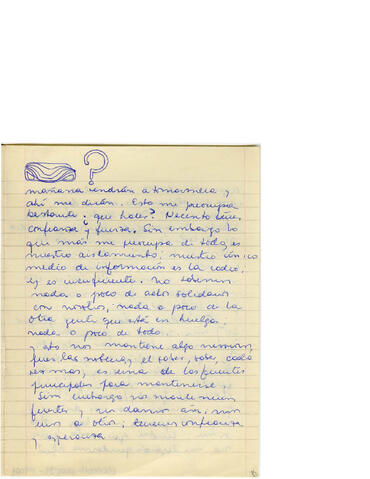 ?
mañana vendrán a tomarnosla y
ahí me dirán. Esto me preocupa
bastante. ¿que hacer? Necesito
confianza y fuerza. Sin embargo lo
que más me preocupa de todo, es
nuestro aislamiento; nuestro único
medio de información es la radio,
y es insuficiente. No sabemos
nada o poco de actos solidarios
con nosotros, nada o poco de la
otra gente que está en huelga.
nada o poco de todo.
y esto nos mantiene algo
pues las noticias, el saber,
es una de las fuentes
principales para mantenerse.
Sin embargo nos mantenemos
fuertes y nos damos
unos a otros; tenemos confianza
y esperanza